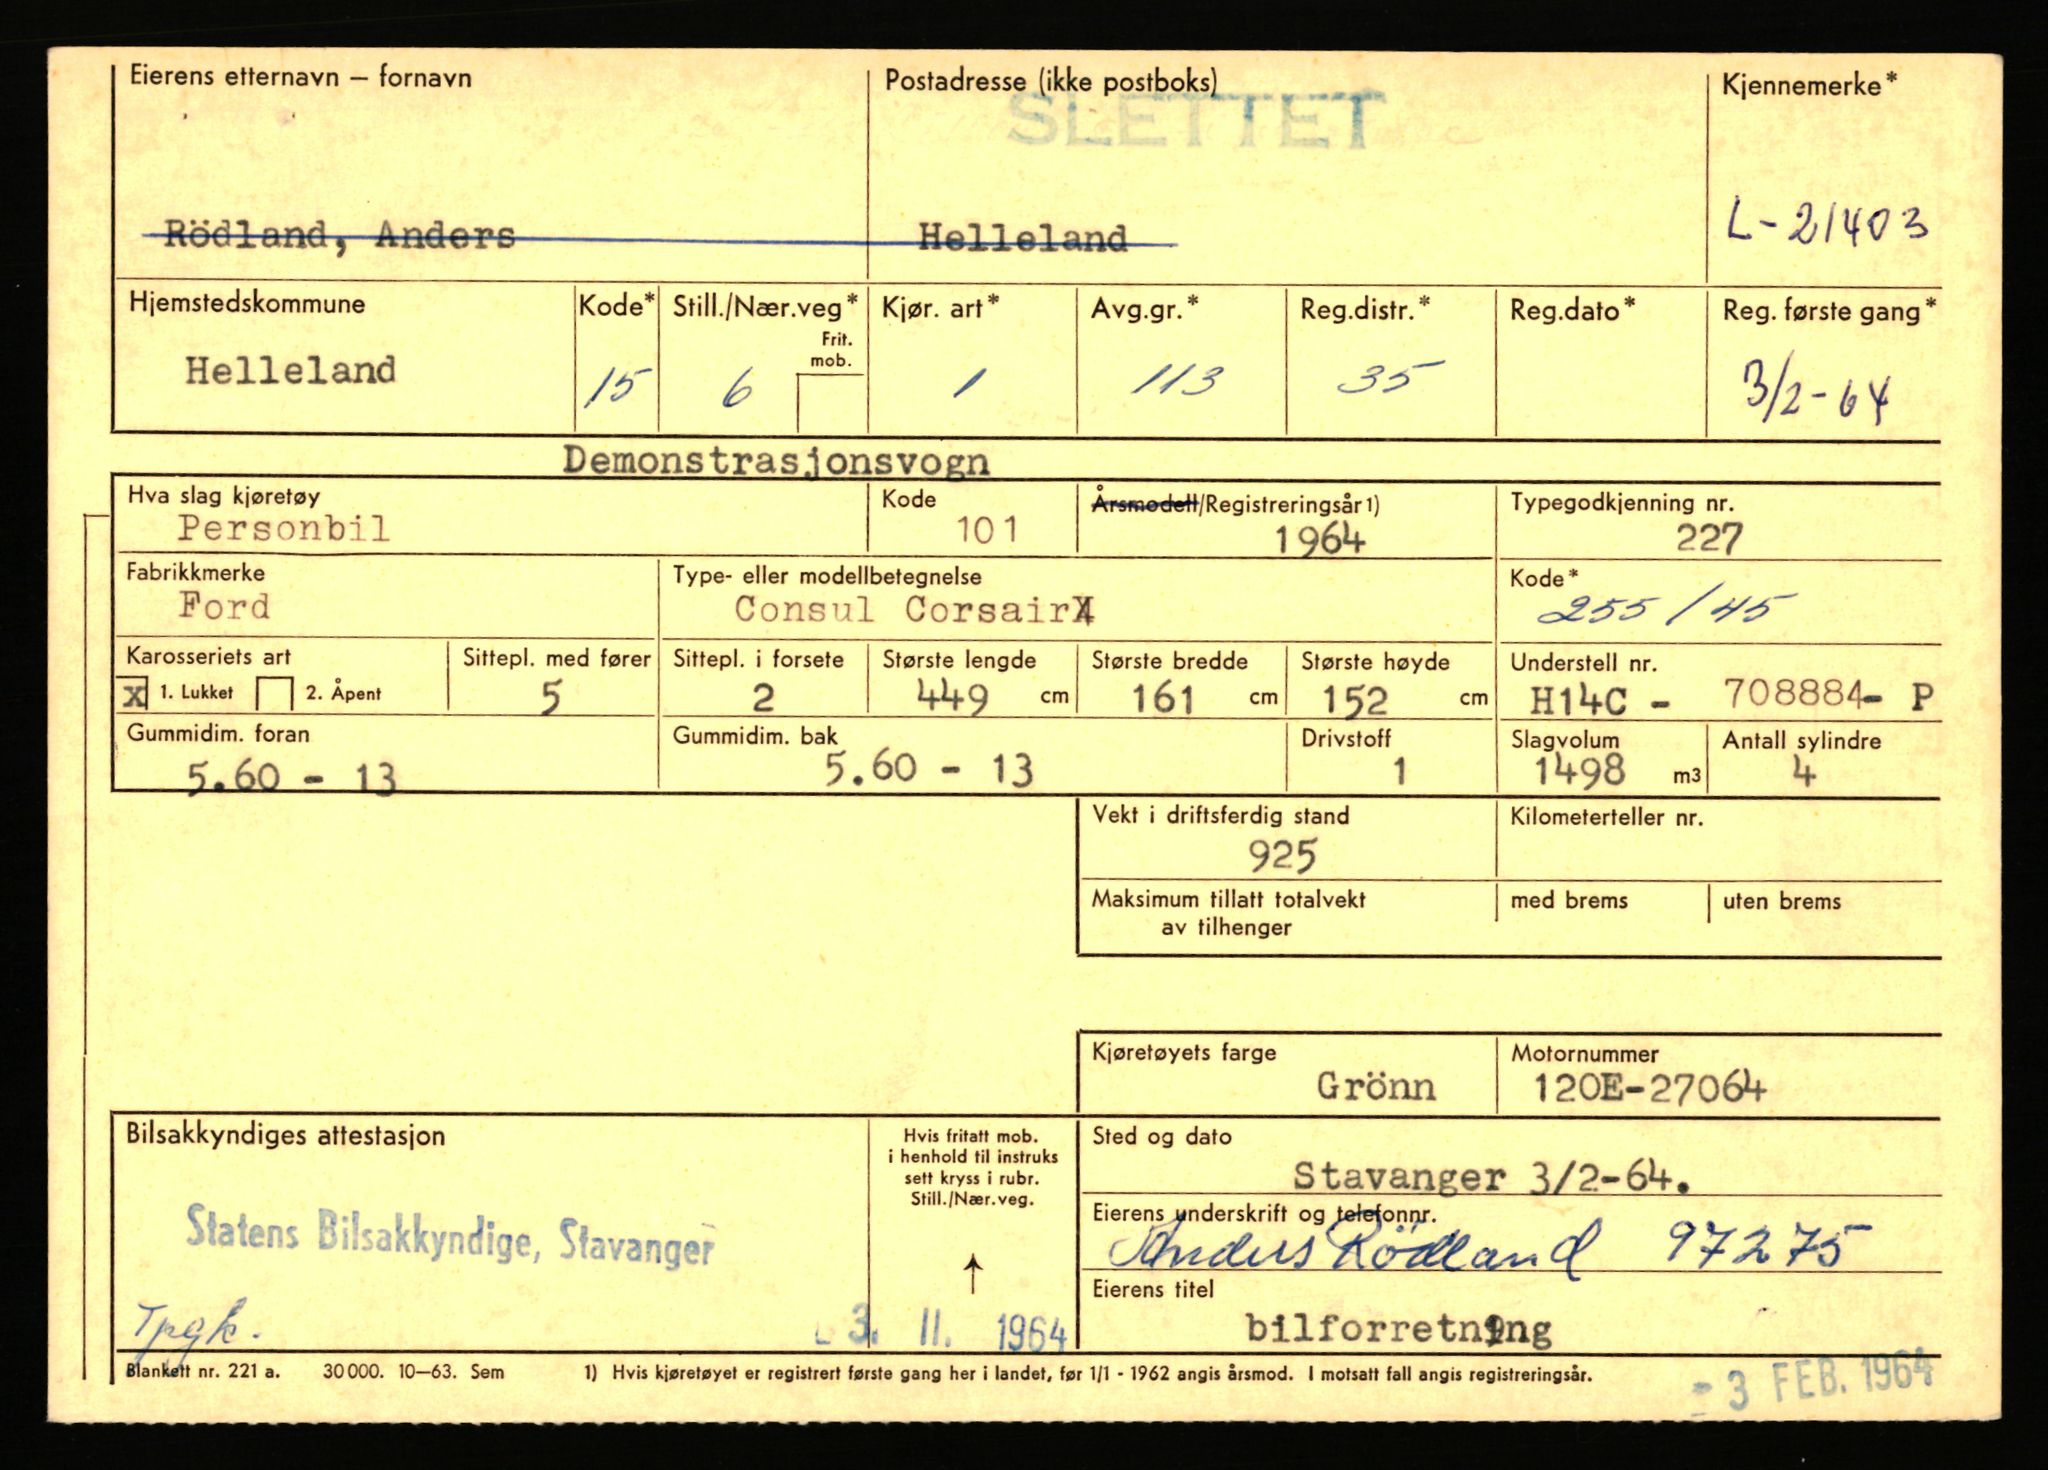 Eierens etternavn – fornavn
Postadresse (ikke postboks)
Kjennemerke*
SLETTET
Rödland, Anders
Helleland
L-21403
Hjemstedskommune
Kode*
Still./Nær.veg*
Frit. mob.
Kjør. art*
Avg.gr.*
Reg.distr.*
Reg.dato*
Reg. første gang*
Helleland
15
6
1
113
35
3/2-64
Demonstrasjonsvogn
Hva slag kjøretøy
Kode
Årsmodell/Registreringsår 1)
Typegodkjenning nr.
Personbil
101
1964
227
Fabrikkmerke
Type- eller modellbetegnelse
Kode*
Ford
Consul Corsair
255/45
Karosseriets art
Sittepl. med fører
Sittepl. i forsete
Største lengde
Største bredde
Største høyde
Understell nr.
X 1. Lukket
2. Åpent
5
2
449 cm
161 cm
152 cm
H14C - 708884- P
Gummidim. foran
Gummidim. bak
Drivstoff
Slagvolum
Antall sylindre
5.60 - 13
5.60 - 13
1
1498 m3
4
Vekt i driftsferdig stand
Kilometerteller nr.
925
Maksimum tillatt totalvekt
av tilhenger
med brems
uten brems
Kjøretøyets farge
Motornummer
Grönn
120E-27064
Bilsakkyndiges attestasjon
Hvis fritatt mob.
i henhold til instruks
sett kryss i rubr.
Still./Nær.veg.
Sted og dato
Stavanger 3/2-64.
Statens Bilsakkyndige, Stavanger
Eierens underskrift og telefonnr.
Anders Rödland 97275
Eierens titel
bilforretning
Tpgk.
3. II. 1964
Blankett nr. 221 a. 30 000. 10–63. Sem
1) Hvis kjøretøyet er registrert første gang her i landet, før 1/1 - 1962 angis årsmod. I motsatt fall angis registreringsår.
- 3 FEB. 1964